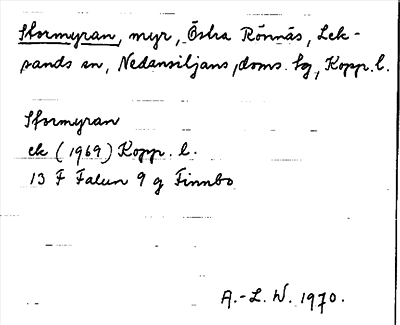 Stormyran, myr, Östra Rönnäs, Lek-
sands sn, Nedansiljans doms. hg, Kopp. l.
Stormyran
ek (1969) Kopp. l.
13 F Falun 9 g Finnbo
A.-L. W. 1970.